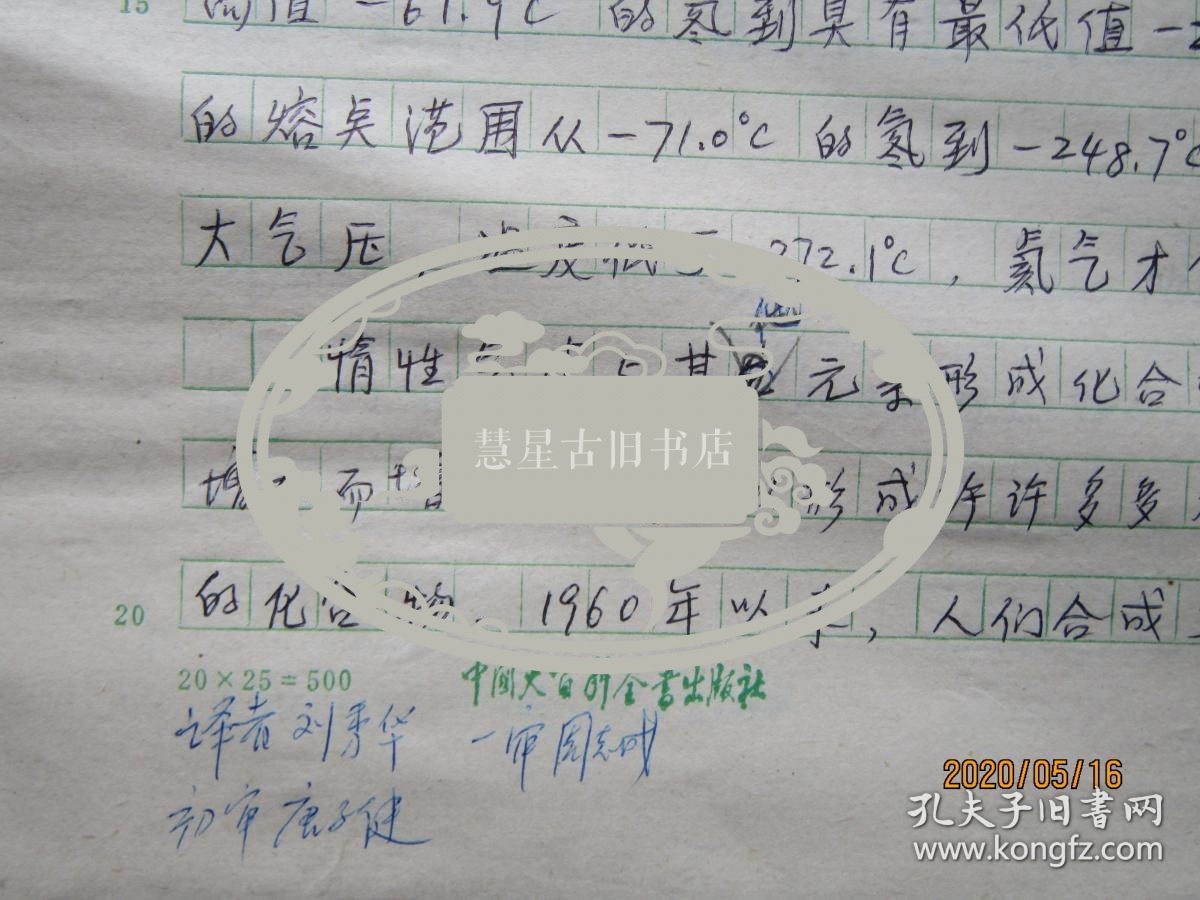 15 值-61.9℃ 的氡到具有最低值-2
的熔点范围从-71.0℃的氡到-248.7℃
大气压 272.1℃,氦气才
惰性 与其他元素形成化合
增 而增 形成许许多多
20 的化合物。1960年以来,人们合成
慧星古旧书店
20×25=500 中国大百科全书出版社
译者 刘秀华 一审 周志成
初审 唐子健
2020/05/16
孔夫子旧书网
www.kongfz.com